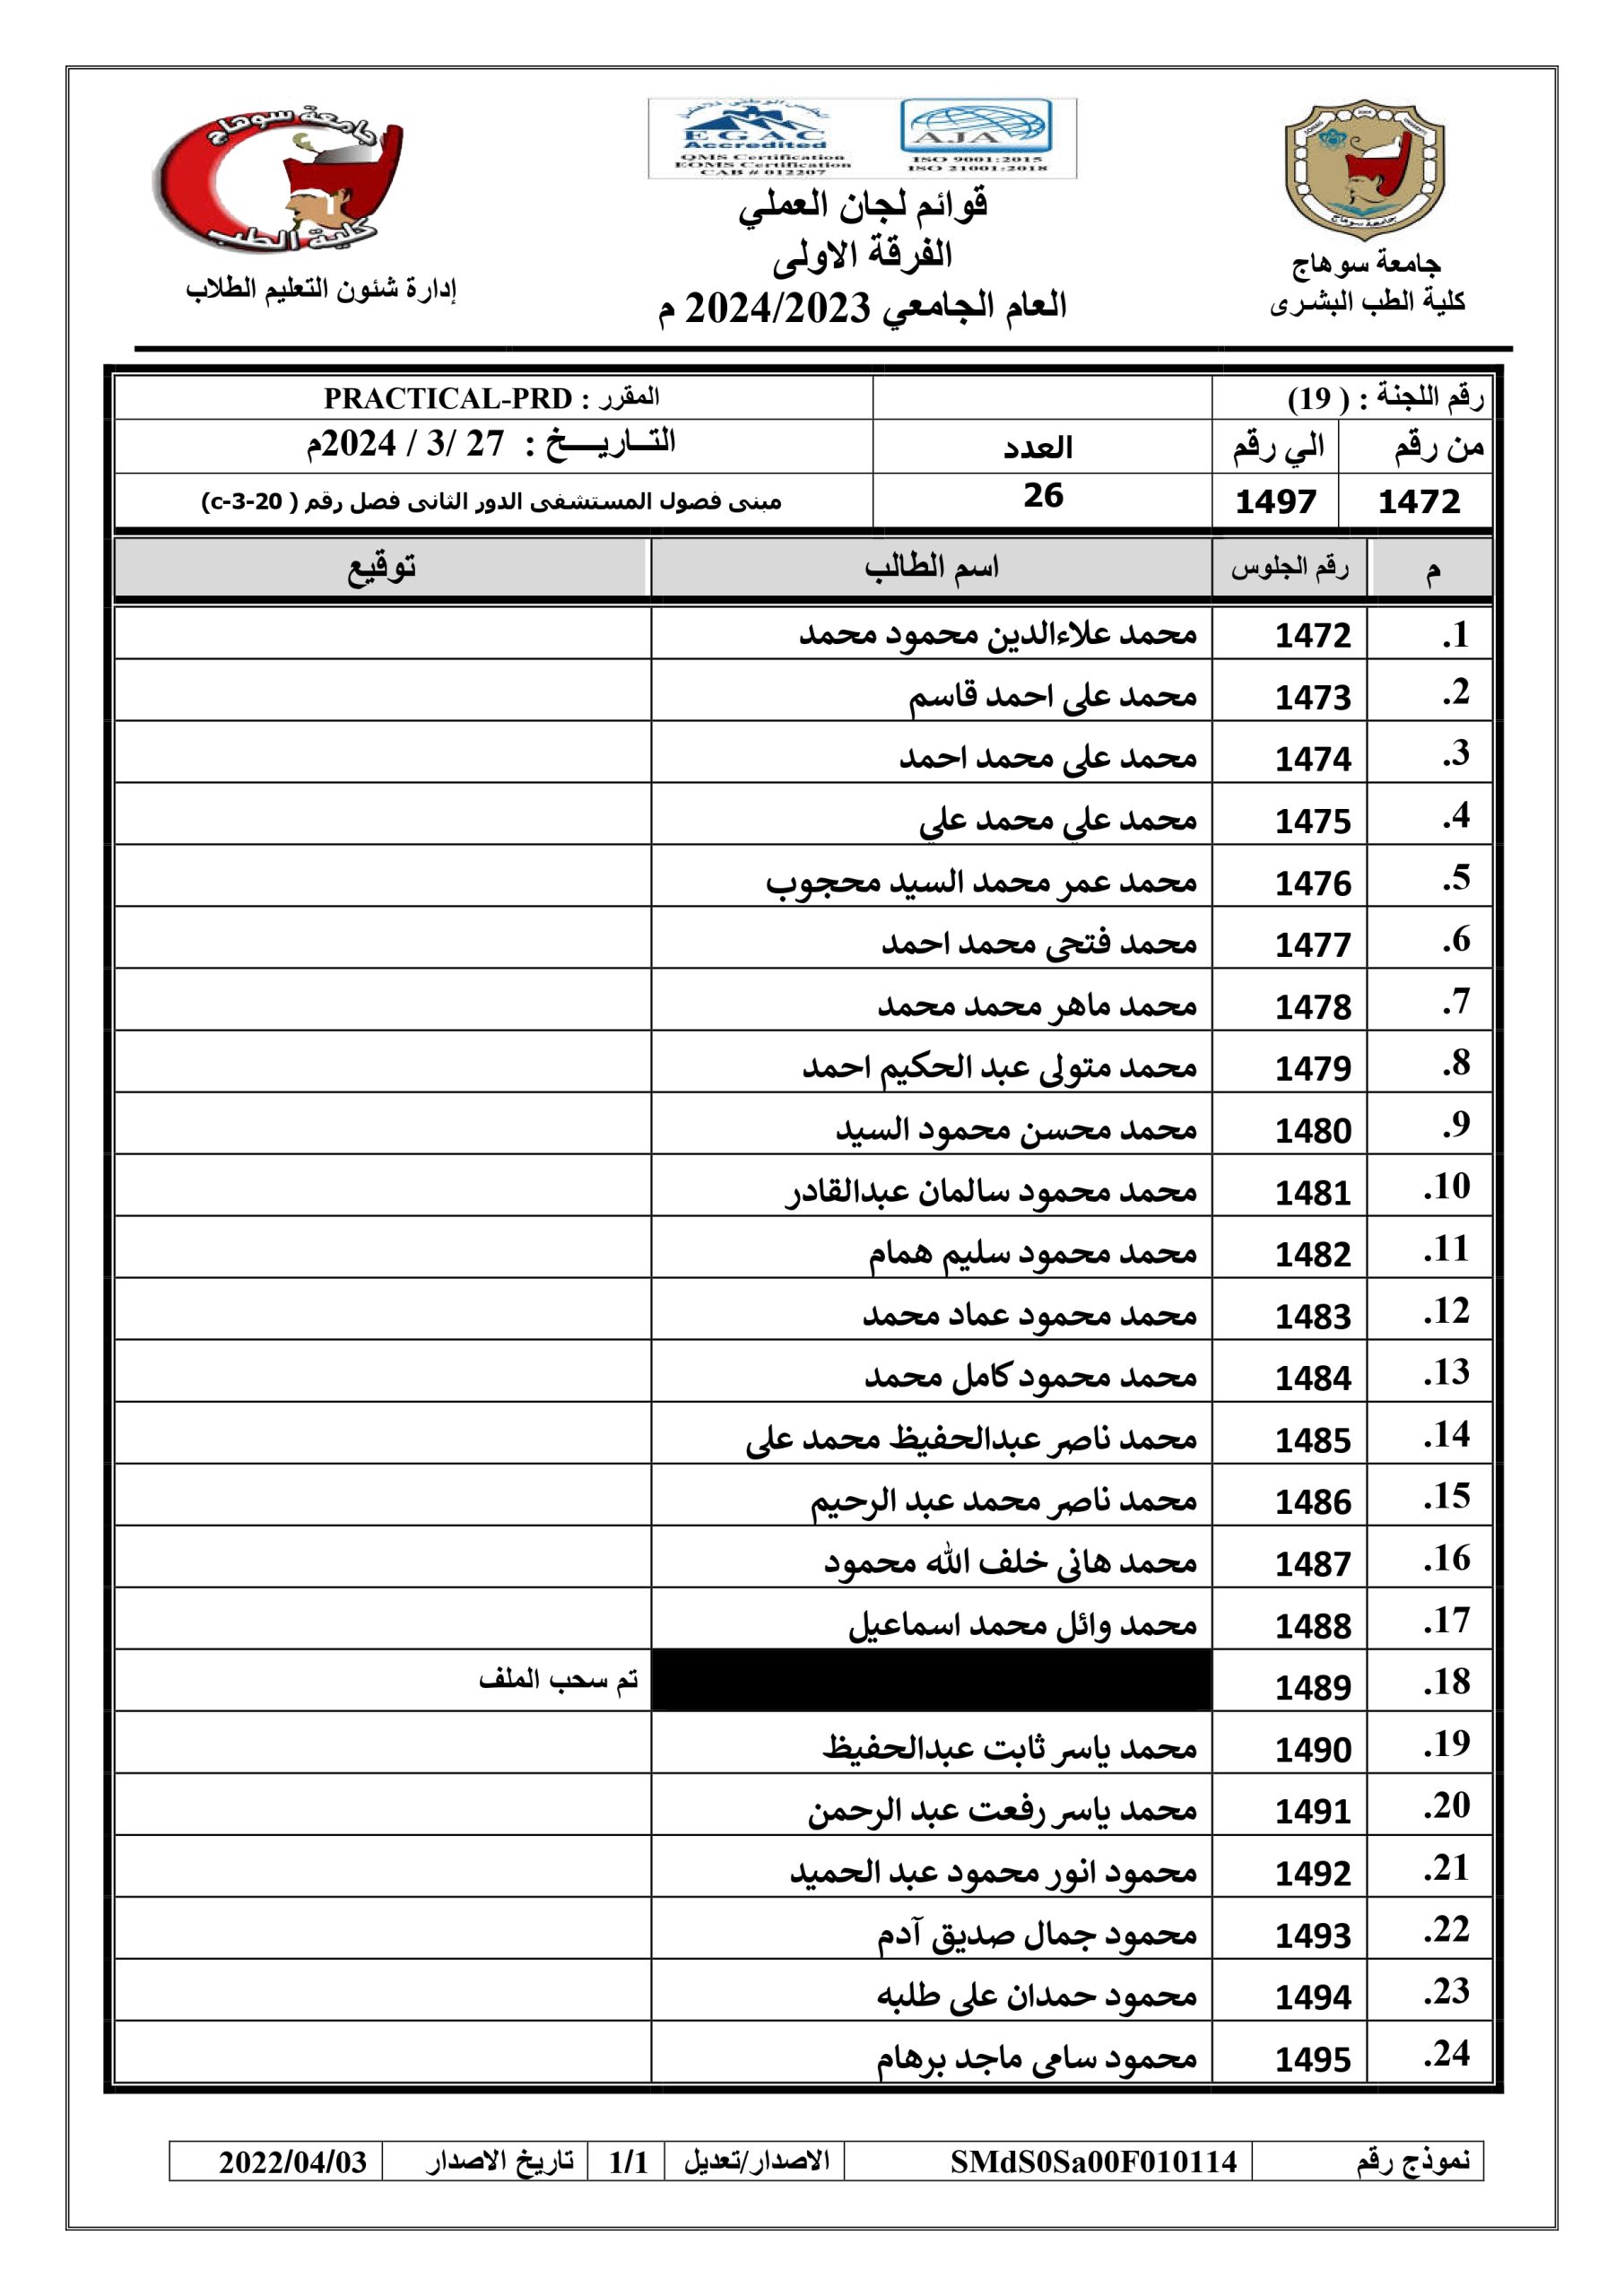 جامعة سوهاج
كلية الطب
EGAC
Accredited
QMS Certification
EOMS Certification
CAB # 012207
AJA
ISO 9001:2015
ISO 21001:2018
جامعة سوهاج
جامعة سوهاج
كلية الطب البشرى
قوائم لجان العملي
الفرقة الاولى
العام الجامعي 2024/2023 م
إدارة شئون التعليم الطلاب
رقم اللجنة : ( 19) المقرر : PRACTICAL-PRD
من رقم الي رقم العدد التـــاريــــخ : 27 /3 / 2024م
1472 1497 26 مبنى فصول المستشفى الدور الثانى فصل رقم ( c-3-20)
م رقم الجلوس اسم الطالب توقيع
1. 1472 محمد علاءالدين محمود محمد
2. 1473 محمد على احمد قاسم
3. 1474 محمد على محمد احمد
4. 1475 محمد علي محمد علي
5. 1476 محمد عمر محمد السيد محجوب
6. 1477 محمد فتحى محمد احمد
7. 1478 محمد ماهر محمد محمد
8. 1479 محمد متولى عبد الحكيم احمد
9. 1480 محمد محسن محمود السيد
10. 1481 محمد محمود سالمان عبدالقادر
11. 1482 محمد محمود سليم همام
12. 1483 محمد محمود عماد محمد
13. 1484 محمد محمود كامل محمد
14. 1485 محمد ناصر عبدالحفيظ محمد على
15. 1486 محمد ناصر محمد عبد الرحيم
16. 1487 محمد هانى خلف الله محمود
17. 1488 محمد وائل محمد اسماعيل
18. 1489 تم سحب الملف
19. 1490 محمد ياسر ثابت عبدالحفيظ
20. 1491 محمد ياسر رفعت عبد الرحمن
21. 1492 محمود انور محمود عبد الحميد
22. 1493 محمود جمال صديق آدم
23. 1494 محمود حمدان على طلبه
24. 1495 محمود سامى ماجد برهام
نموذج رقم SMdS0Sa00F010114 الاصدار/تعديل 1/1 تاريخ الاصدار 2022/04/03